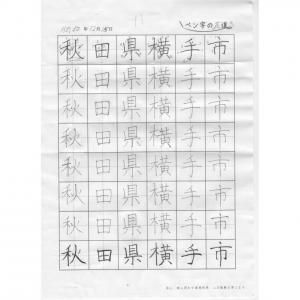 ペン字の
秋田県横手市
秋田県横手市
秋田県横手市
秋田県横手市
秋田県横手市
秋田県横手市
秋田県横手市
秋田県横手市